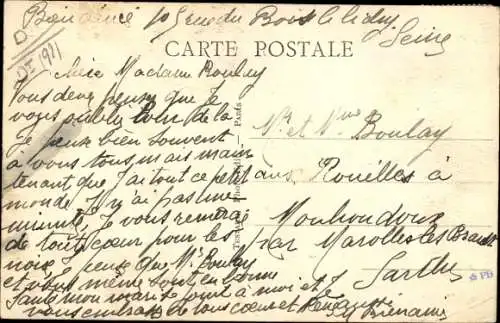 Bienaimé 10 Grue du Bois le
Seine
CARTE POSTALE
1921
chère Madame Boulay
Vous devez penser que Je
vous oublie loin de la
Je pense bien souvent
à vous tous mais main
tenant que J'ai tout ce petit
monde Je n'ai pas une
minute Je vous remercie
de tout cœur pour les
noix Je pense que Mr Boulay
et vous même sont en bonne
Santé mon mari se joint à moi et
vous embrasse de tous cœur et
Bienaimé
Mr et Mme Boulay
aux Rouilles à
Mouhoudoux
par Marolles les Braults
Sarthe